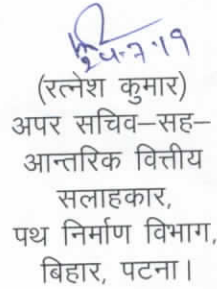 24.7.19
(रत्नेश कुमार)
अपर सचिव–सह–
आन्तरिक वित्तीय
सलाहकार,
पथ निर्माण विभाग,
बिहार, पटना।